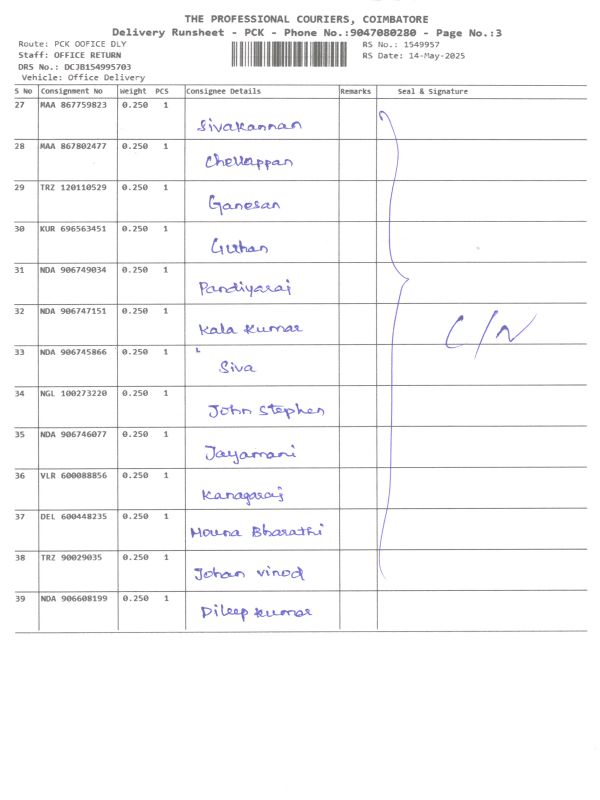 THE PROFESSIONAL COURIERS, COIMBATORE
Delivery Runsheet - PCK - Phone No.:9047080280 - Page No.:3
Route: PCK OOFICE DLY
RS No.: 1549957
Staff: OFFICE RETURN
RS Date: 14-May-2025
DRS No.: DCJB154995703
Vehicle: Office Delivery
S No Consignment No Weight PCS Consignee Details Remarks Seal & Signature
27 MAA 867759823 0.250 1
Sivakannan
28 MAA 867802477 0.250 1
Chellappan
29 TRZ 120110529 0.250 1
Ganesan
30 KUR 696563451 0.250 1
Guhan
31 NDA 906749034 0.250 1
Pandiyaraj
32 NDA 906747151 0.250 1
Kala Kumar
C/N
33 NDA 906745866 0.250 1
Siva
34 NGL 100273220 0.250 1
John Stephen
35 NDA 906746077 0.250 1
Jayamani
36 VLR 600088856 0.250 1
Kanagaraj
37 DEL 600448235 0.250 1
Mouna Bharathi
38 TRZ 90029035 0.250 1
Johan vinod
39 NDA 906608199 0.250 1
Dileep kumar